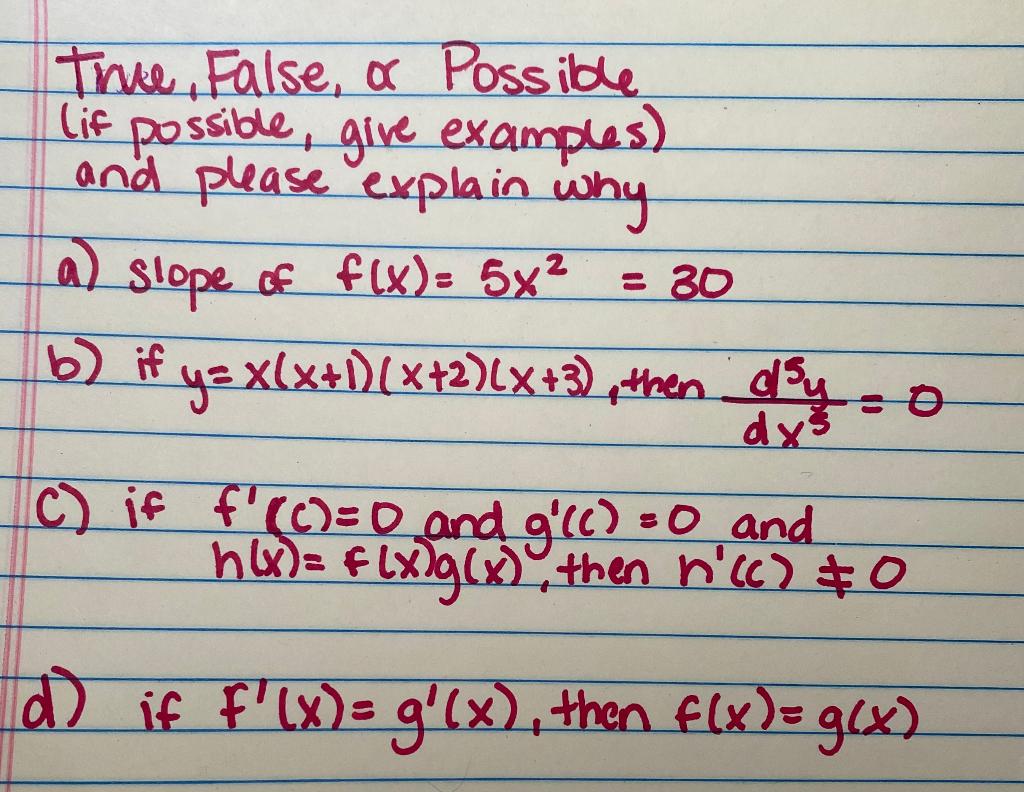 True, False, or Possible
(if possible, give examples)
and please explain why
a) slope of f(x) = 5x² = 30
b) if y = x(x+1)(x+2)(x+3), then d⁵y/dx⁵ = 0
c) if f'(c) = 0 and g'(c) = 0 and
h(x) = f(x)g(x), then h'(c) ≠ 0
d) if f'(x) = g'(x), then f(x) = g(x)